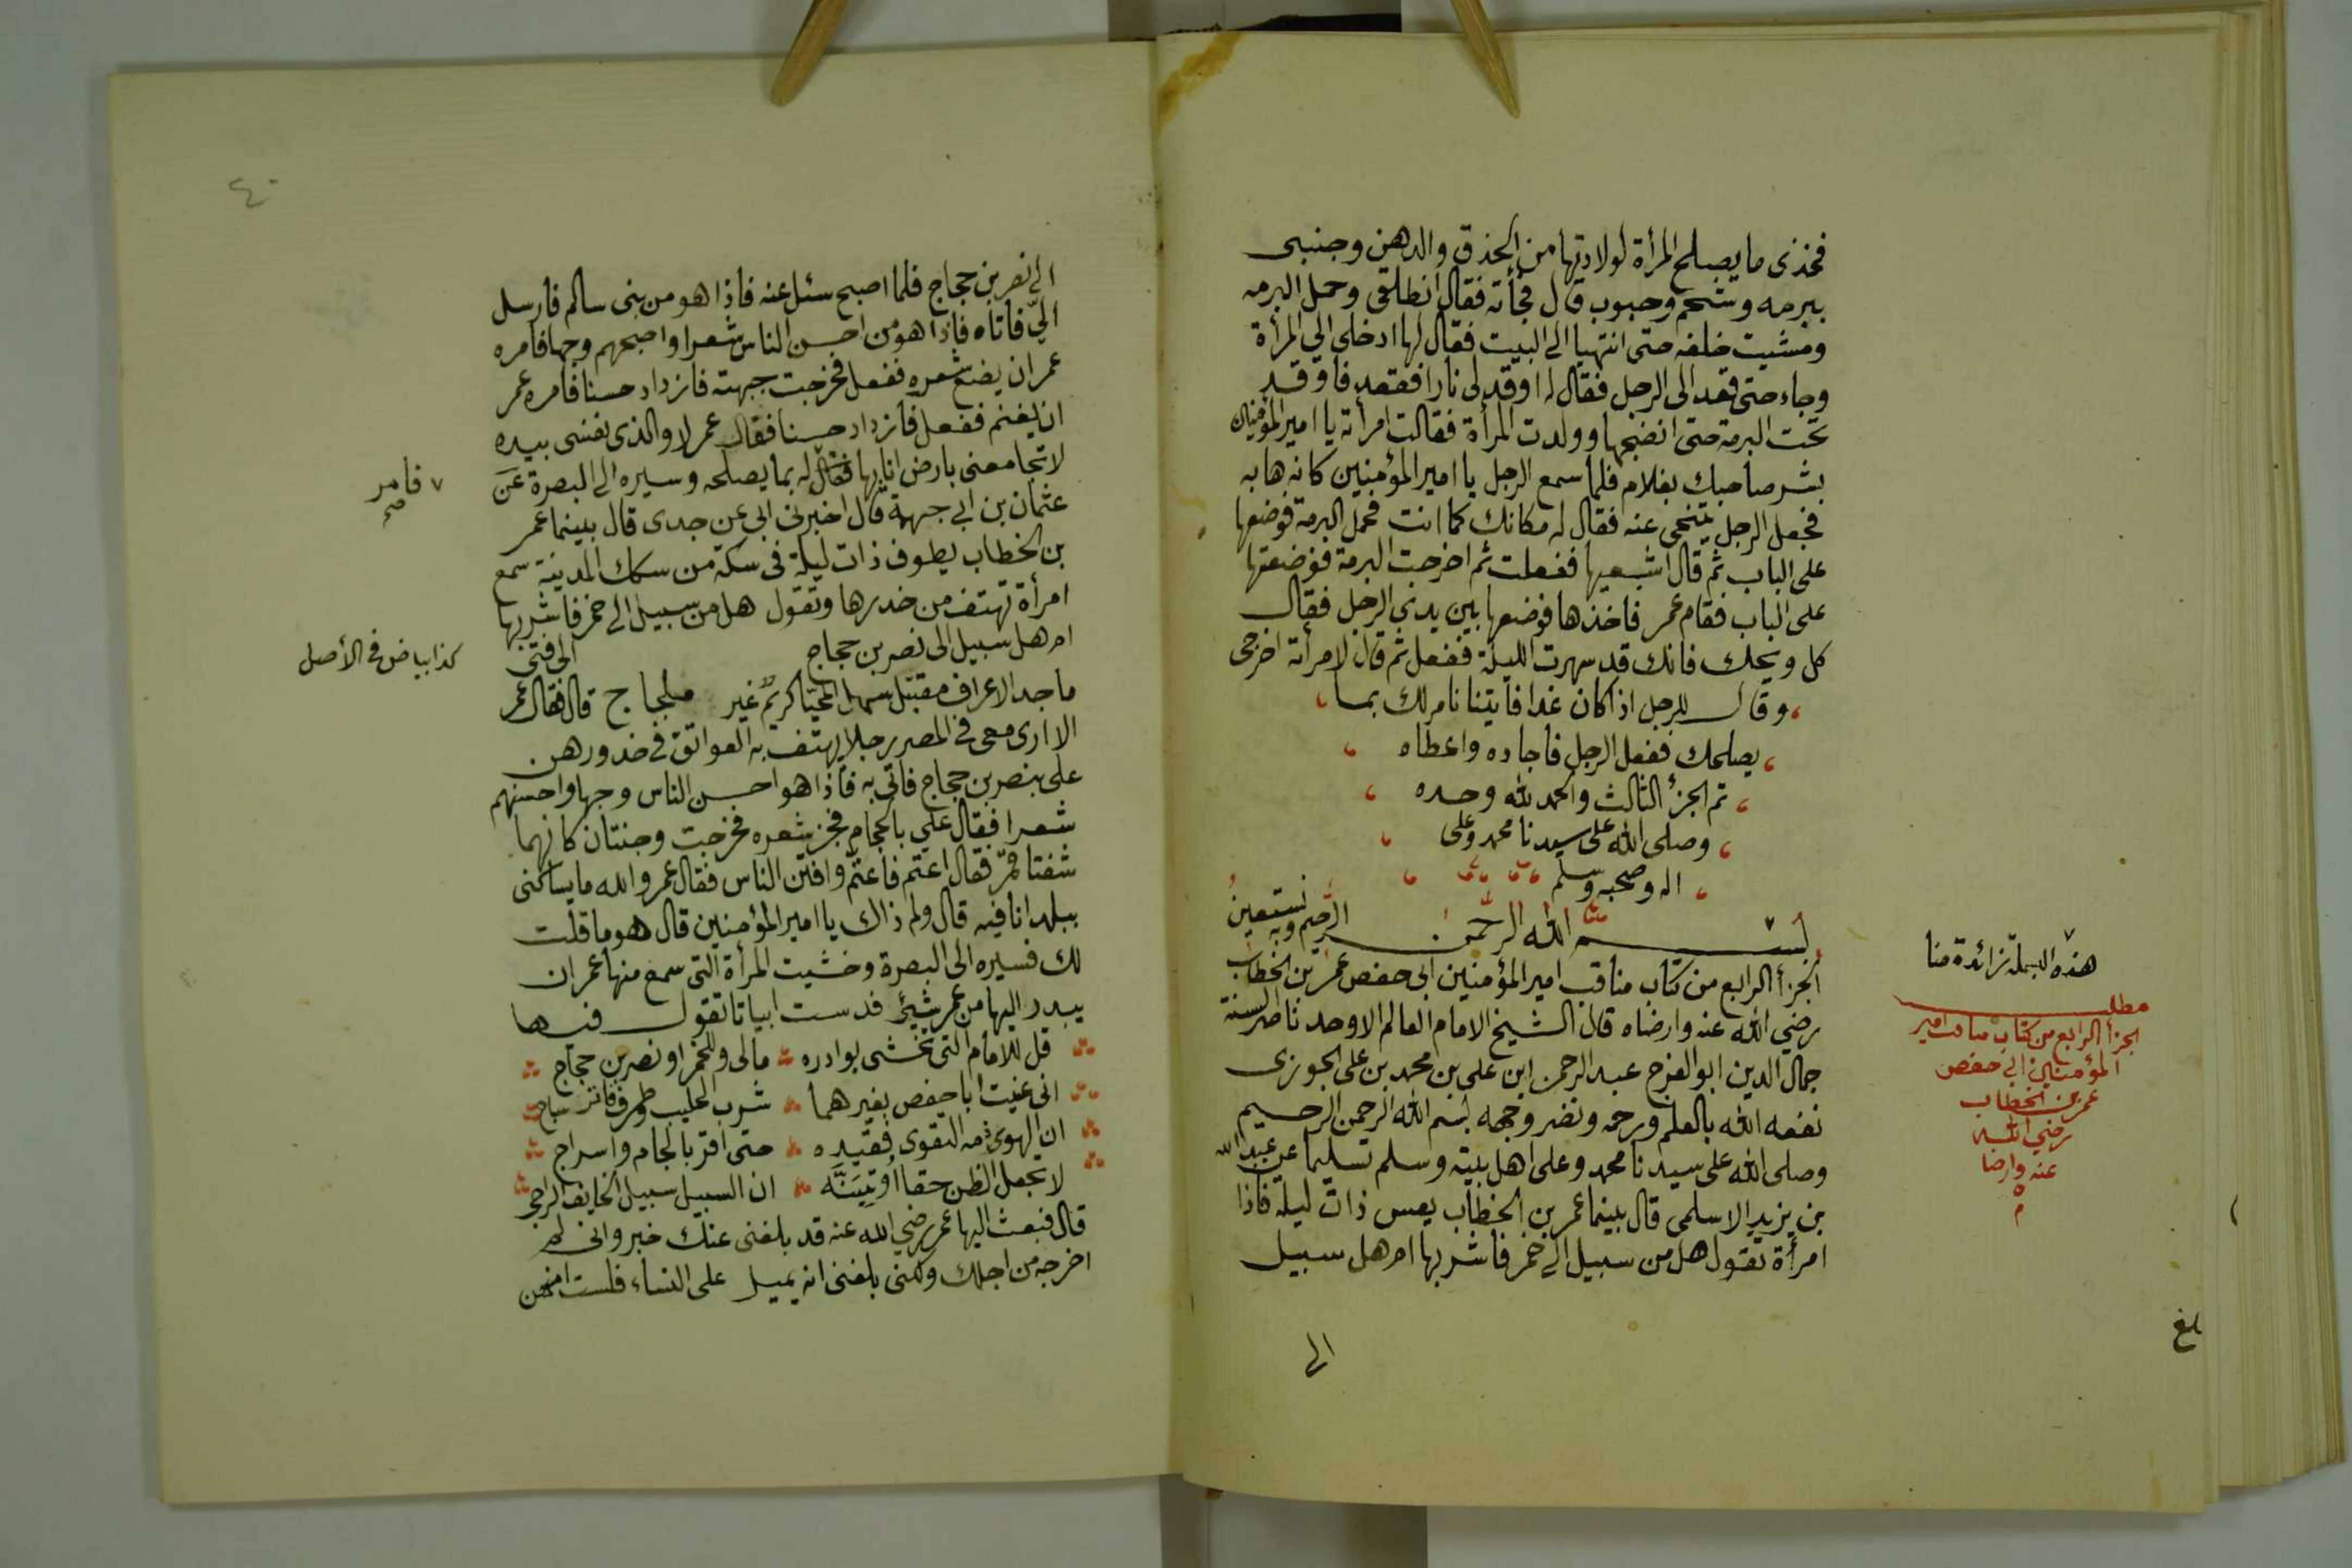 فخذى ما يصلح المرأة لولادتها من الخذق والدهن وجنبى
ببرمه وشحم وحبوب قال فجأته فقال انطلقى وحمل البرمه
ومشيت خلفه حتى انتهيا الى البيت فقال لها ادخلى الي المرأة
وجاء حتى قعد الى الرجل فقال له اوقد لى نارا ففعد فاوقد
تحت البرمة حتى انضجها وولدت المرأة فقالت امرأته يا امير المؤمنين
بشر صاحبك بغلام فلما سمع الرجل يا امير المؤمنين كانه هابه
فجعل الرجل يتنحى عنه فقال له مكانك كما انت فحمل البرمة فوضعها
على الباب ثم قال اشبعيها ففعلت ثم اخرجت البرمة فوضعتها
على الباب فقام عمر فاخذها فوضعها بين يدي الرجل فقال
كل ويحك فانك قد سهرت الليلة ففعل ثم قال لامرأته اخرجى
وقال للرجل اذ اكان غدا فايتنا نامر لك بما
يصلحك ففعل الرجل فاجاده واعطاه
تم الجزأ الثالث والحمد لله وحده
وصلى الله على سيدنا محمد وعلى
اله وصحبه وسلم
بسم الله الرحمن الرحيم وبه نستعين
الجزأ الرابع من كتاب مناقب امير المؤمنين ابى حفص عمر بن الخطاب
رضي الله عنه وارضاه قال الشيخ الامام العالم الاوحد ناصر السنة
جمال الدين ابو الفرج عبد الرحمن ابن على بن محمد بن على الجوزى
نفعه الله بالعلم ورحمه ونضر وجهه بسم الله الرحمن الرحيم
وصلى الله على سيدنا محمد وعلى اهل بيته وسلم تسليما عن عبد الله
بن يزيد الاسلمى قال بينما عمر بن الخطاب يعس ذات ليله فاذا
امرأة تقول هل من سبيل الى خمر فاشربها ام هل سبيل
الى
هذه البسملة زائدة منا
مطلب
الجزأ الرابع من كتاب مناقب امير
المؤمنين ابي حفص
عمر بن الخطاب
رضي الله
عنه وارضا
ه
م
بلغ
٤٠
الى نصر بن حجاج فلما اصبح سئل عنه فاذا هو من بنى سالم فارسل
اليّ فاتاه فاذا هو من احسن الناس شعرا واصبحهم وجها فامره
عمر ان يضع شعره ففعل فخرجت جبهته فازداد حسنا فامره عمر
ان يغنم ففعل فازداد حسنا فقال عمر لا والذى نفسى بيده
لا تجامعنى بارض انا بها فقال له بما يصلحه وسيره الى البصرة عن
عثمان بن ابي جهمة قال اخبرنى ابى عن جدى قال بينما عمر
بن الخطاب يطوف ذات ليلة فى سكة من سكك المدينة سمع
امرأة تهتف من خدرها وتقول هل من سبيل الى خمر فاشربها
ام هل سبيل الى نصر بن حجاج الى فتى
ماجد الاعراف مقتبل سهل المحيّا كريمٌ غير ملجاج قال فقال عمر
الا ارى معى في المصر رجلا يهتف به العواتق في خدورهن
على بنصر بن حجاج فاتى به فاذا هو احسن الناس وجها واحسنهم
شعرا فقال علي بالحجام فجز شعره فخرجت وجنتان كانهما
شفتا قمر فقال اعتم فاعتمّ وافتن الناس فقال عمر والله ما يساكنى
ببلد انا فيه قال ولم ذاك يا امير المؤمنين قال هو ما قلت
لك فسيره الى البصرة وخشيت المرأة التى سمع منها عمر ان
يبدر اليها من عمر شيئ فدست ابياتا تقول فيها
قل للامام التى تخشى بوادره مالى وللخمر او نصر بن حجاج
انى غنيت ابا حفص بغيرهما شرب الحليب وطرف فاتر ساج
ان الهوى ذمه التقوى فقيده حتى اقر بالجام واسراج
لا تجعل الظن حقا او تبينه ان السبيل سبيل الخايف الراجى
قال فبعث اليها عمر رضي الله عنه قد بلغنى عنك خبر وانى لم
اخرجه من اجلك ولكنى بلغنى انه يميل على النساء فلست امنهن
٧ فامر
صح
كذا بياض فى الأصل